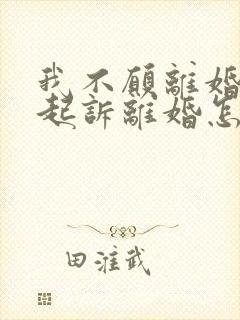 我不願離婚
起訴離婚怎
田淮武